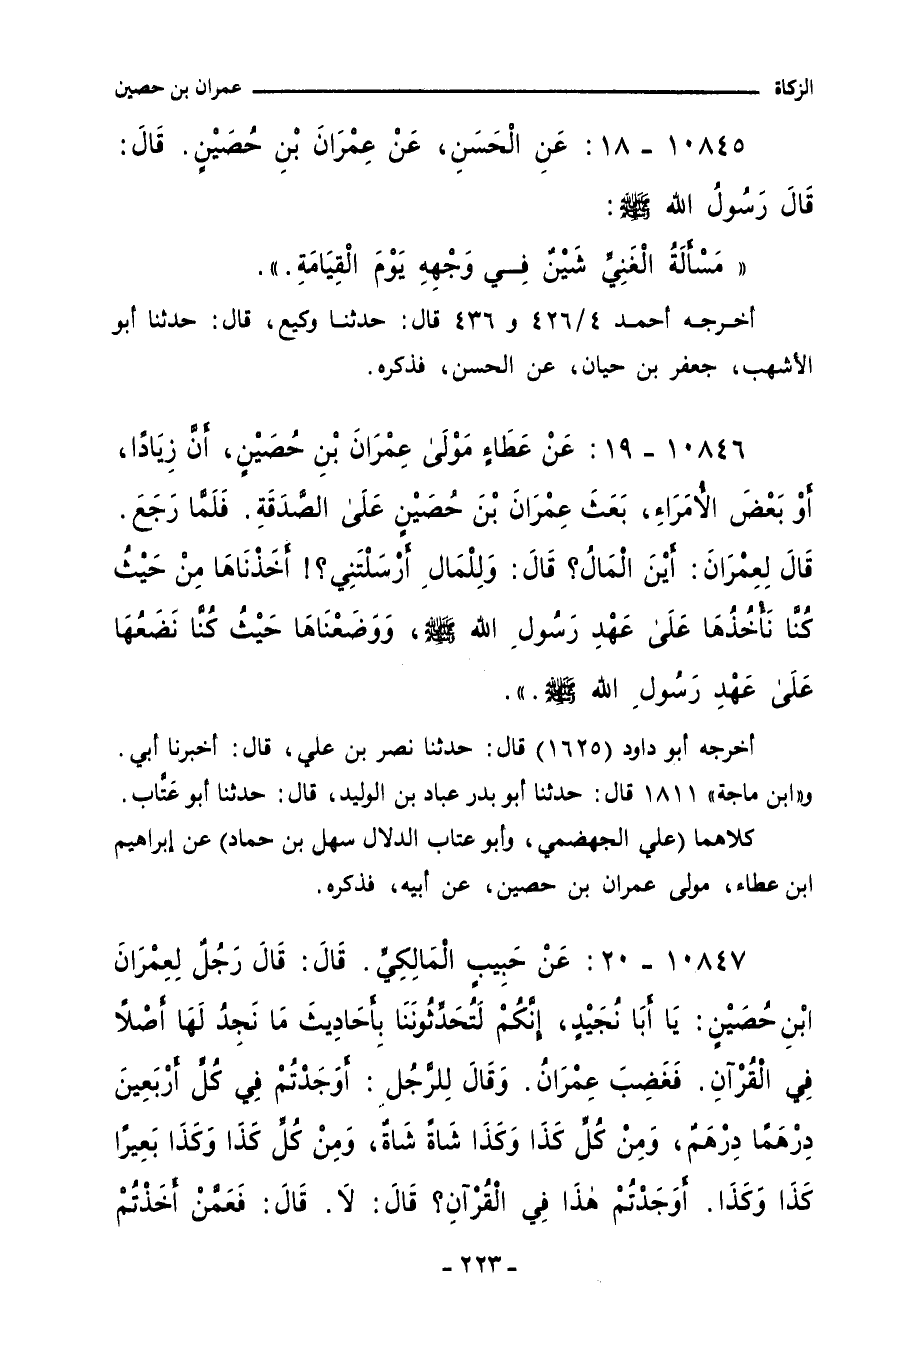 الزكاة ـــــــــــــ عمران بن حصين
١٠٨٤٥ - ١٨ : عَنِ الْحَسَنِ، عَنْ عِمْرَانَ بْنِ حُصَيْنٍ. قَالَ:
قَالَ رَسُولُ اللهِ ﷺ:
« مَسْأَلَةُ الْغَنِيِّ شَيْنٌ فِي وَجْهِهِ يَوْمَ الْقِيَامَةِ.».
أخرجه أحمد ٤/٤٢٦ و ٤٣٦ قال: حدثنا وكيع، قال: حدثنا أبو
الأشهب، جعفر بن حيان، عن الحسن، فذكره.
١٠٨٤٦ - ١٩ : عَنْ عَطَاءٍ مَوْلَىٰ عِمْرَانَ بْنِ حُصَيْنٍ، أَنَّ زِيَادًا،
أَوْ بَعْضَ الأُمَرَاءِ، بَعَثَ عِمْرَانَ بْنَ حُصَيْنٍ عَلَىٰ الصَّدَقَةِ. فَلَمَّا رَجَعَ.
قَالَ لِعِمْرَانَ: أَيْنَ الْمَالُ؟ قَالَ: وَلِلْمَالِ أَرْسَلْتَنِي؟! أَخَذْنَاهَا مِنْ حَيْثُ
كُنَّا نَأْخُذُهَا عَلَىٰ عَهْدِ رَسُولِ اللهِ ﷺ، وَوَضَعْنَاهَا حَيْثُ كُنَّا نَضَعُهَا
عَلَىٰ عَهْدِ رَسُولِ اللهِ ﷺ.».
أخرجه أبو داود (١٦٢٥) قال: حدثنا نصر بن علي، قال: أخبرنا أبي.
و«ابن ماجة» ١٨١١ قال: حدثنا أبو بدر عباد بن الوليد، قال: حدثنا أبو عَتَّاب.
كلاهما (علي الجهضمي، وأبو عتاب الدلال سهل بن حماد) عن إبراهيم
ابن عطاء، مولى عمران بن حصين، عن أبيه، فذكره.
١٠٨٤٧ - ٢٠ : عَنْ حَبِيبٍ الْمَالِكِيِّ. قَالَ: قَالَ رَجُلٌ لِعِمْرَانَ
ابْنِ حُصَيْنٍ: يَا أَبَا نُجَيْدٍ، إِنَّكُمْ لَتُحَدِّثُونَنَا بِأَحَادِيثَ مَا نَجِدُ لَهَا أَصْلًا
فِي الْقُرْآنِ. فَغَضِبَ عِمْرَانُ. وَقَالَ لِلرَّجُلِ: أَوَجَدْتُمْ فِي كُلِّ أَرْبَعِينَ
دِرْهَمًا دِرْهَمٌ، وَمِنْ كُلِّ كَذَا وَكَذَا شَاةً شَاةٌ، وَمِنْ كُلِّ كَذَا وَكَذَا بَعِيرًا
كَذَا وَكَذَا. أَوَجَدْتُمْ هٰذَا فِي الْقُرْآنِ؟ قَالَ: لَا. قَالَ: فَعَمَّنْ أَخَذْتُمْ
- ٢٢٣ -